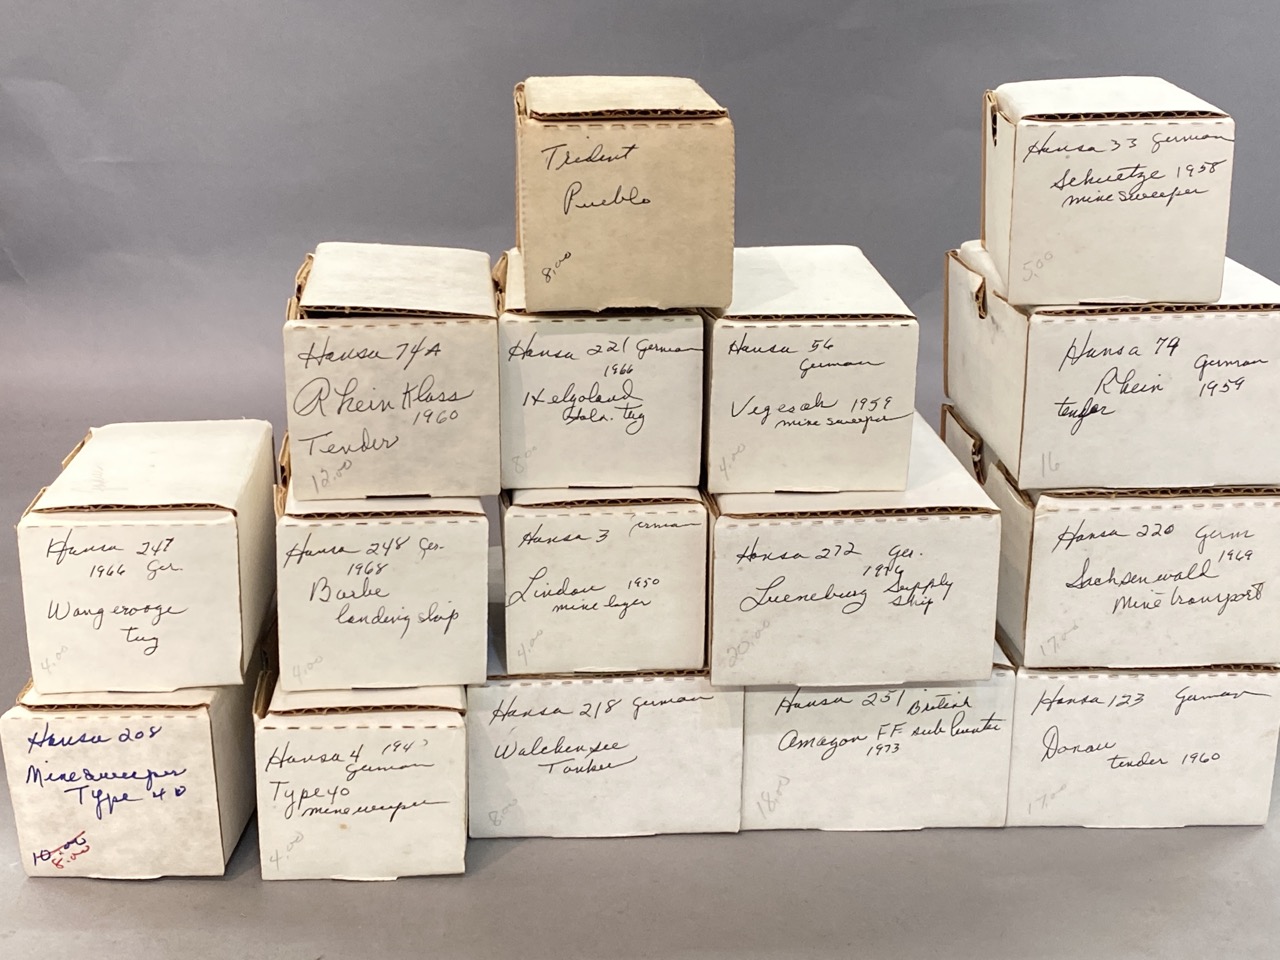 Trident
Pueblo
8.00
Hansa 33 German
Schuetze 1958
mine sweeper
5.00
Hansa 74A
Rhein Klass
1960
Tender
12.00
Hansa 221 German
1966
Helgoland
tug
8.00
Hansa 56
German
Vegesak 1959
mine sweeper
4.00
Hansa 79
German
Rhein 1959
tender
16
Hansa 247
1966 Ger.
Wangerooge
tug
4.00
Hansa 248 Ger.
1968
Barbe
landing ship
4.00
Hansa 3 erman
Lindau 1950
mine layer
4.00
Hansa 272 Ger.
1976
Lueneburg Supply
Ship
20.00
Hansa 220 Germ
1969
Sachsenwald
Mine transport
17.00
Hansa 208
Minesweeper
Type 40
10.00
8.00
Hansa 4 194
German
Type 40
minesweeper
4.00
Hansa 218 German
Walchensee
Tanker
8.00
Hansa 251 British
Amazon FF sub hunter
1973
18.00
Hansa 123 German
Donau
tender 1960
17.00